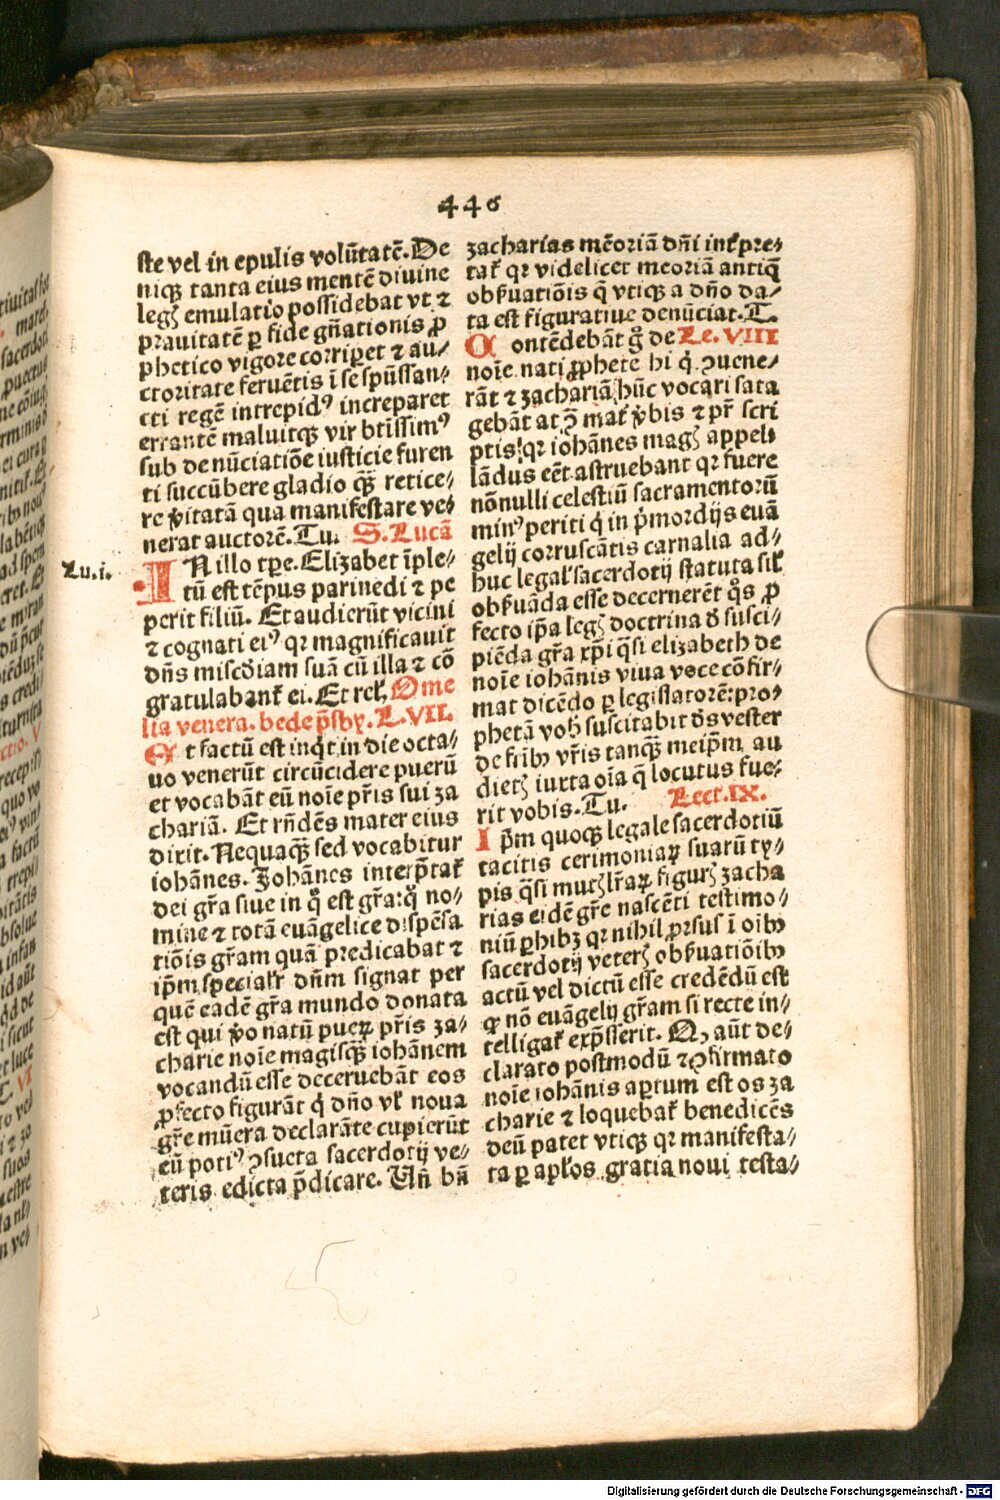 446
ste vel in epulis volūtatē. De
niqꝫ tanta eius mentē divine
legꝭ emulatio possidebat vt ⁊
prauitatē ꝑ fide gn̄ationis ꝓ
phetico vigore corriꝑet ⁊ au/
ctoritate feruētis ī se spūssan/
cti regē intrepidꝰ increparet
errantē maluitqꝫ vir btīssimꝰ
sub denūciatiōe iusticie furen
ti succūbere gladio qꝫ̄ retice/
re v̓itatā qua manifestare ve/
nerat auctorē. Tu. S. Lucā
Lu. i.
IN illo tp̄e. Elizabet īple/
tū est tēpus pariendi ⁊ pe
perit filiū. Et audierūt vicini
⁊ cognati eiꝰ qꝛ magnificauit
dn̄s misc̄diam suā cū illa ⁊ cō
gratulabant̉ ei. Et rel̓. Ome
lia venera. bede p̄sby. L. VII.
Et factū est inq̇t in die octa/
uo venerūt circūcidere puerū
et vocabāt eū noīe pr̄is sui za
chariā. Et rn̄dēs mater eius
dixit. Neqĩaqꝫ̄ sed vocabitur
iohānes. Johānes interp̄tat̉
dei gr̄a siue in q̊ est gr̄a: q̊ no/
mine ⁊ totā euāgelice dispēsa
tiōis gr̄am quā predicabat ⁊
ip̄m special̓r dn̄m signat per
quē eadē gr̄a mundo donata
est qui v̓o natū pueꝝ pr̄is za/
charie noīe magisqꝫ̄ iohānem
vocandū esse deceruebāt eos
ꝓfecto figurāt q̇ dn̄o vl̓ noua
gr̄e mūera declarāte cupierūt
eū potiꝰ ꝯsueta sacerdotij ve/
teris edicta p̄dicare. Vn̄ bn̄
zacharias mēoriā dn̄i int̉pre/
tat̉ qꝛ videlicet meoriā antiq̄
obs̓uatiōis q̄ vtiqꝫ a dn̄o da/
ta est figuratiue denūciat. T.
Contēdebāt g̊ de Le. VIII
noīe nati ꝓphete hi q̇ ꝯuene/
rāt ⁊ zachariā hūc vocari sata
gebāt at ꝯ̄ mat̉ v̓bis ⁊ pr̄ scri
ptis: qꝛ iohānes magꝭ appel/
lādus eēt astruebant qꝛ fuere
nōnulli celestiū sacramentorū
minꝰ periti q̇ in p̓mordijs euā
gelij corruscātis carnalia ad/
huc legal̓ sacerdotij statuta sil̓
obs̓uāda esse decernerēt q̊s ꝓ
fecto ip̄a legꝭ doctrina ꝺ̓ susci/
piēda gr̄a xp̄i q̄si elizabeth de
noīe iohānis viua voce cōfir/
mat dicēdo ꝑ legislatorē: pro/
phetā vob̓ suscitabit dꝰs vester
de frib̓ vr̄is tanqꝫ̄ meip̄m au
dietꝭ iuxta oīa q̄ locutus fue/
rit vobis. Tu. Lect. IX.
Ip̄m quoqꝫ legale sacerdotiū
tacitis cerimoniaꝝ suarū ty/
pis q̄si mutꝭ lr̄aꝝ figurꝭ zacha
rias eidē gr̄e nascēti testimo/
niū ꝑhibꝫ qꝛ nihil ꝓrsus ī oīb̓
sacerdotij veterꝭ obs̓uatiōib̓
actū vel dictū esse credēdū est
qꝛ nō euāgelij gr̄am si recte in/
telligat̉ exp̄sserit. Qꝫ aūt de/
clarato postmodū ⁊ ꝯfirmato
noīe iohānis aꝑtum est os za
charie ⁊ loquebat̉ benedicēs
deū patet vtiqꝫ qꝛ manifesta/
ta ꝑ apl̓os gratia noui testa/
Digitalisierung gefördert durch die Deutsche Forschungsgemeinschaft - DFG